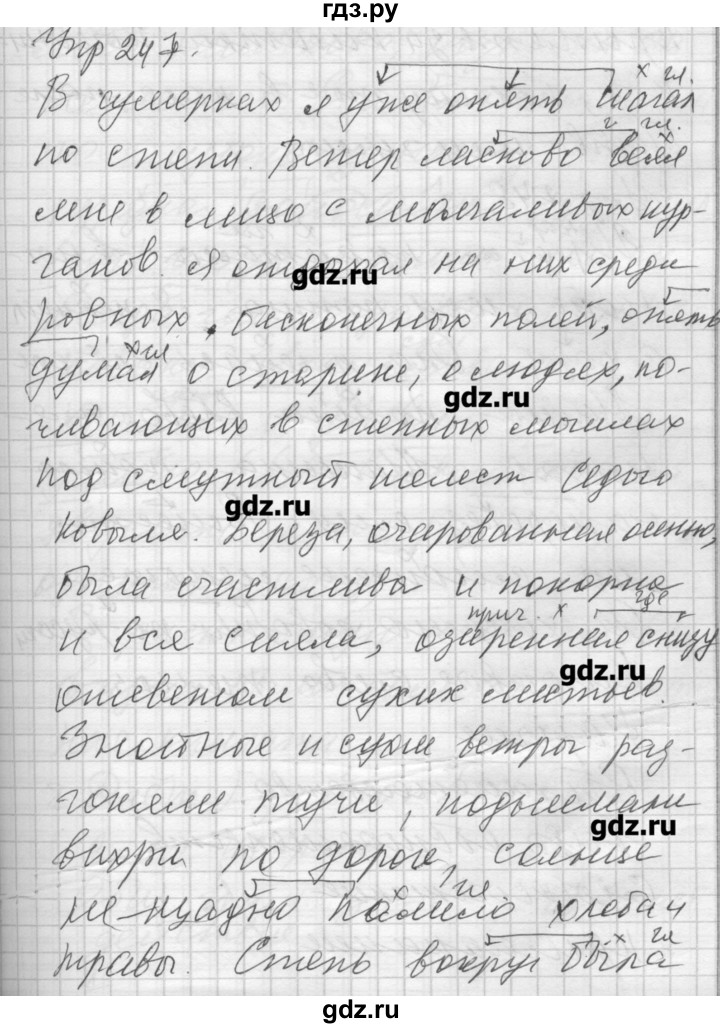 гдз.ру
Упр 247.
х гл.
В сумерках я уже опять шагал
г гл.
х
по степи. Ветер ласково веял
мне в лицо с молчаливых кур-
ганов. Я отдыхал на них среди
gdz.ru
ровных, бесконечных полей, опять
х гл
думал о старине, о людях, по-
gdz.ru
чивающих в степных могилах
под смутный шелест седого
gdz.ru
ковыля. Береза, очарованная осенью,
была счастлива и покорна
прич. х где
и вся сияла, озаренная снизу
gdz.ru
отсветом сухих листьев.
Знойные и сухие ветры раз-
гоняли тучи, подымали
gdz.ru
вихри по дороге, солнце
х гл
не щадно палило хлеба и
х гл
травы. Степь вокруг была
gdz.ru